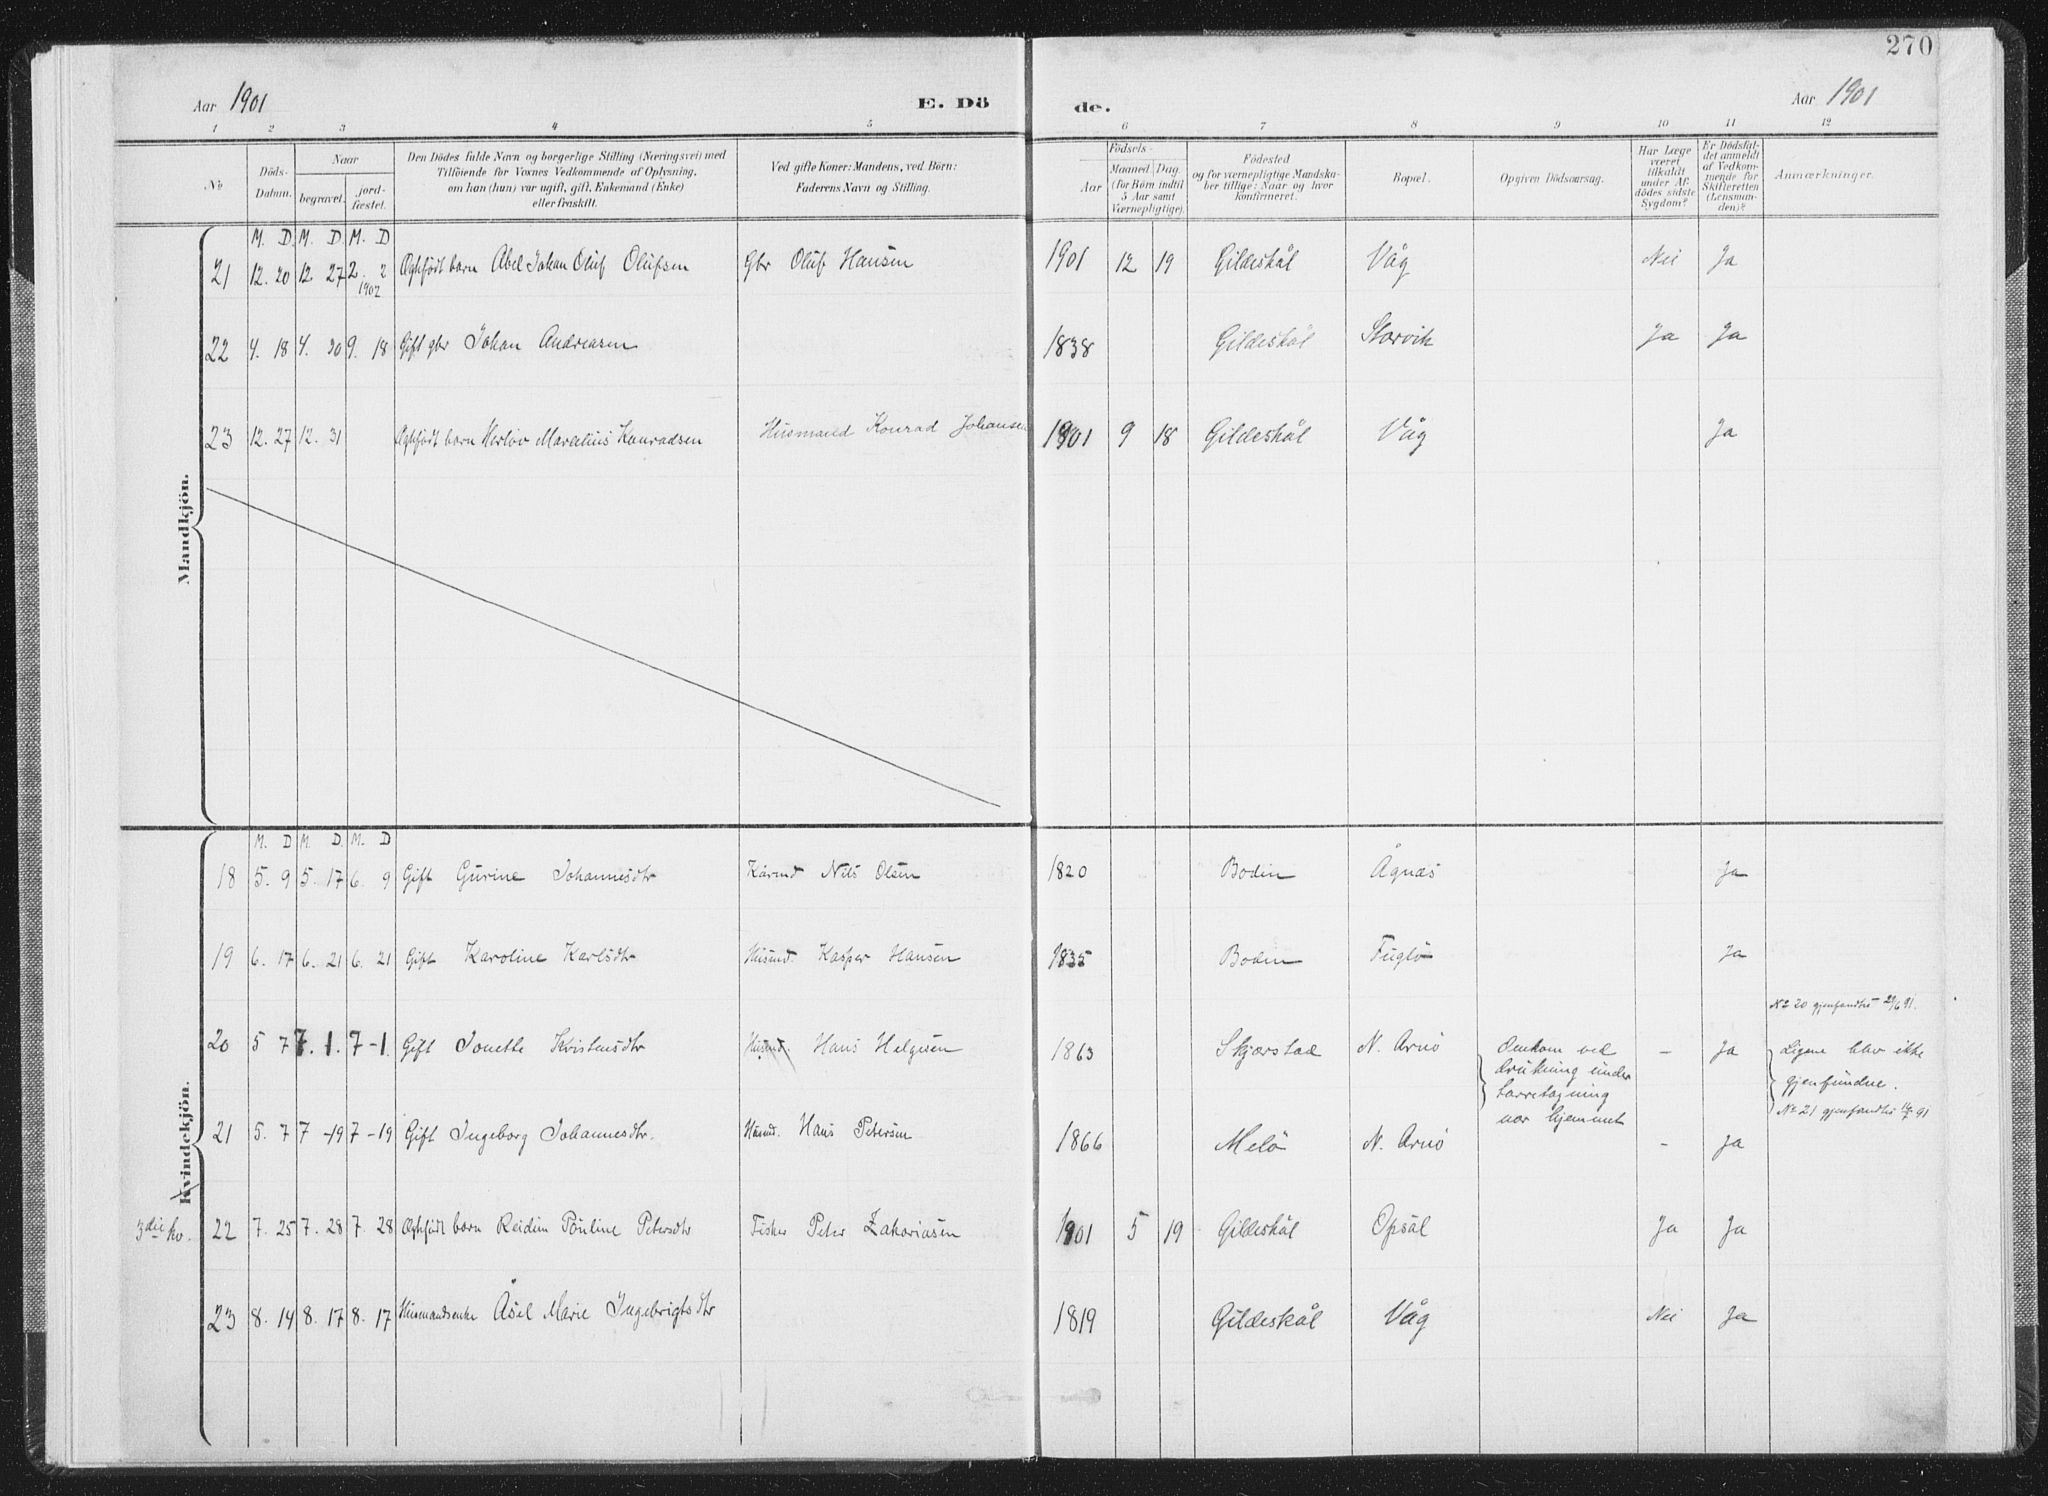 270
Aar 1901 E. Dö de. Aar 1901
1 2 3 4 5 6 7 8 9 10 11 12
No
Döds-Datum.
Naar
begravet.
jord-fæstet.
Den Dödes fulde Navn og borgerlige Stilling (Næringsvei) med
Tilföiende for Voxnes Vedkommende af Oplysning,
om han (hun) var ugift, gift, Enkemand (Enke)
eller fraskilt.
Ved gifte Koner: Mandens, ved Börn:
Faderens Navn og Stilling.
Födsels-
Aar
Maaned Dag
(for Börn indtil
5 Aar samt
Værnepligtige).
Födested
og for værnepligtige Mandska-
ber tillige: Naar og hvor
konfirmeret.
Bopæl.
Opgiven Dödsaarsag.
Har Læge
været
tilkaldt
under Af-
dödes sidste
Sygdom?
Er Dödsfal-
det anmeldt
af Vedkom-
mende for
Skifteretten
(Lensman-
den)?
Anmærkninger.
Mandkjön.
M. D. M. D. M. D
21 12. 20 12 27 2. 2 1902 Ægtefödt barn Abel Johan Oluf Olufsen Gbr Oluf Hansen 1901 12 19 Gildeskål Våg Nei Ja
22 4. 18 4. 30 9. 18 Gift gbr Johan Andreasen 1838 Gildeskål Storvik Ja Ja
23 12. 27 12. 31 Ægtefödt barn Herlov Marelius Konradsen Husmand Konrad Johansen 1901 9 18 Gildeskål Våg Ja
Kvindekjön.
M. D M. D. M. D
18 5. 9 5. 17 6. 9 Gift Gurine Johannesdtr Kårmd Nils Olsen 1820 Bodin Ågnæs Ja
19 6. 17 6. 21 6. 21 Gift Karoline Karlsdtr Husmd. Kasper Hansen 1835 Bodin Fuglö Ja
No 20 gjenfandtes 29/6 91.
20 5 7 7. 1. 7 - 1. Gift Jonette Kristensdtr Husmd. Hans Helgesen 1863 Skjærstad N. Arnö Omkom ved
drukning under
tarretagning
nær hjemmet - Ja Ligene blev ikke
gjenfundne.
No 21 gjenfandtes 91
21 5. 7 7 - 19 7 - 19 Gift Ingeborg Johannesdtr. Husmd. Hans Petersen 1866 Melö N. Arnö - Ja
3die kv. 22 7. 25 7. 28 7. 28 Ægtefödt barn Reidun Pauline Petersdtr Fisker Peter Zakariasen 1901 5 19 Gildeskål Opsal Ja Ja
23 8. 14 8. 17 8. 17 Husmandsenke Åsel Marie Ingebrigtsdtr 1819 Gildeskål Våg Nei Ja